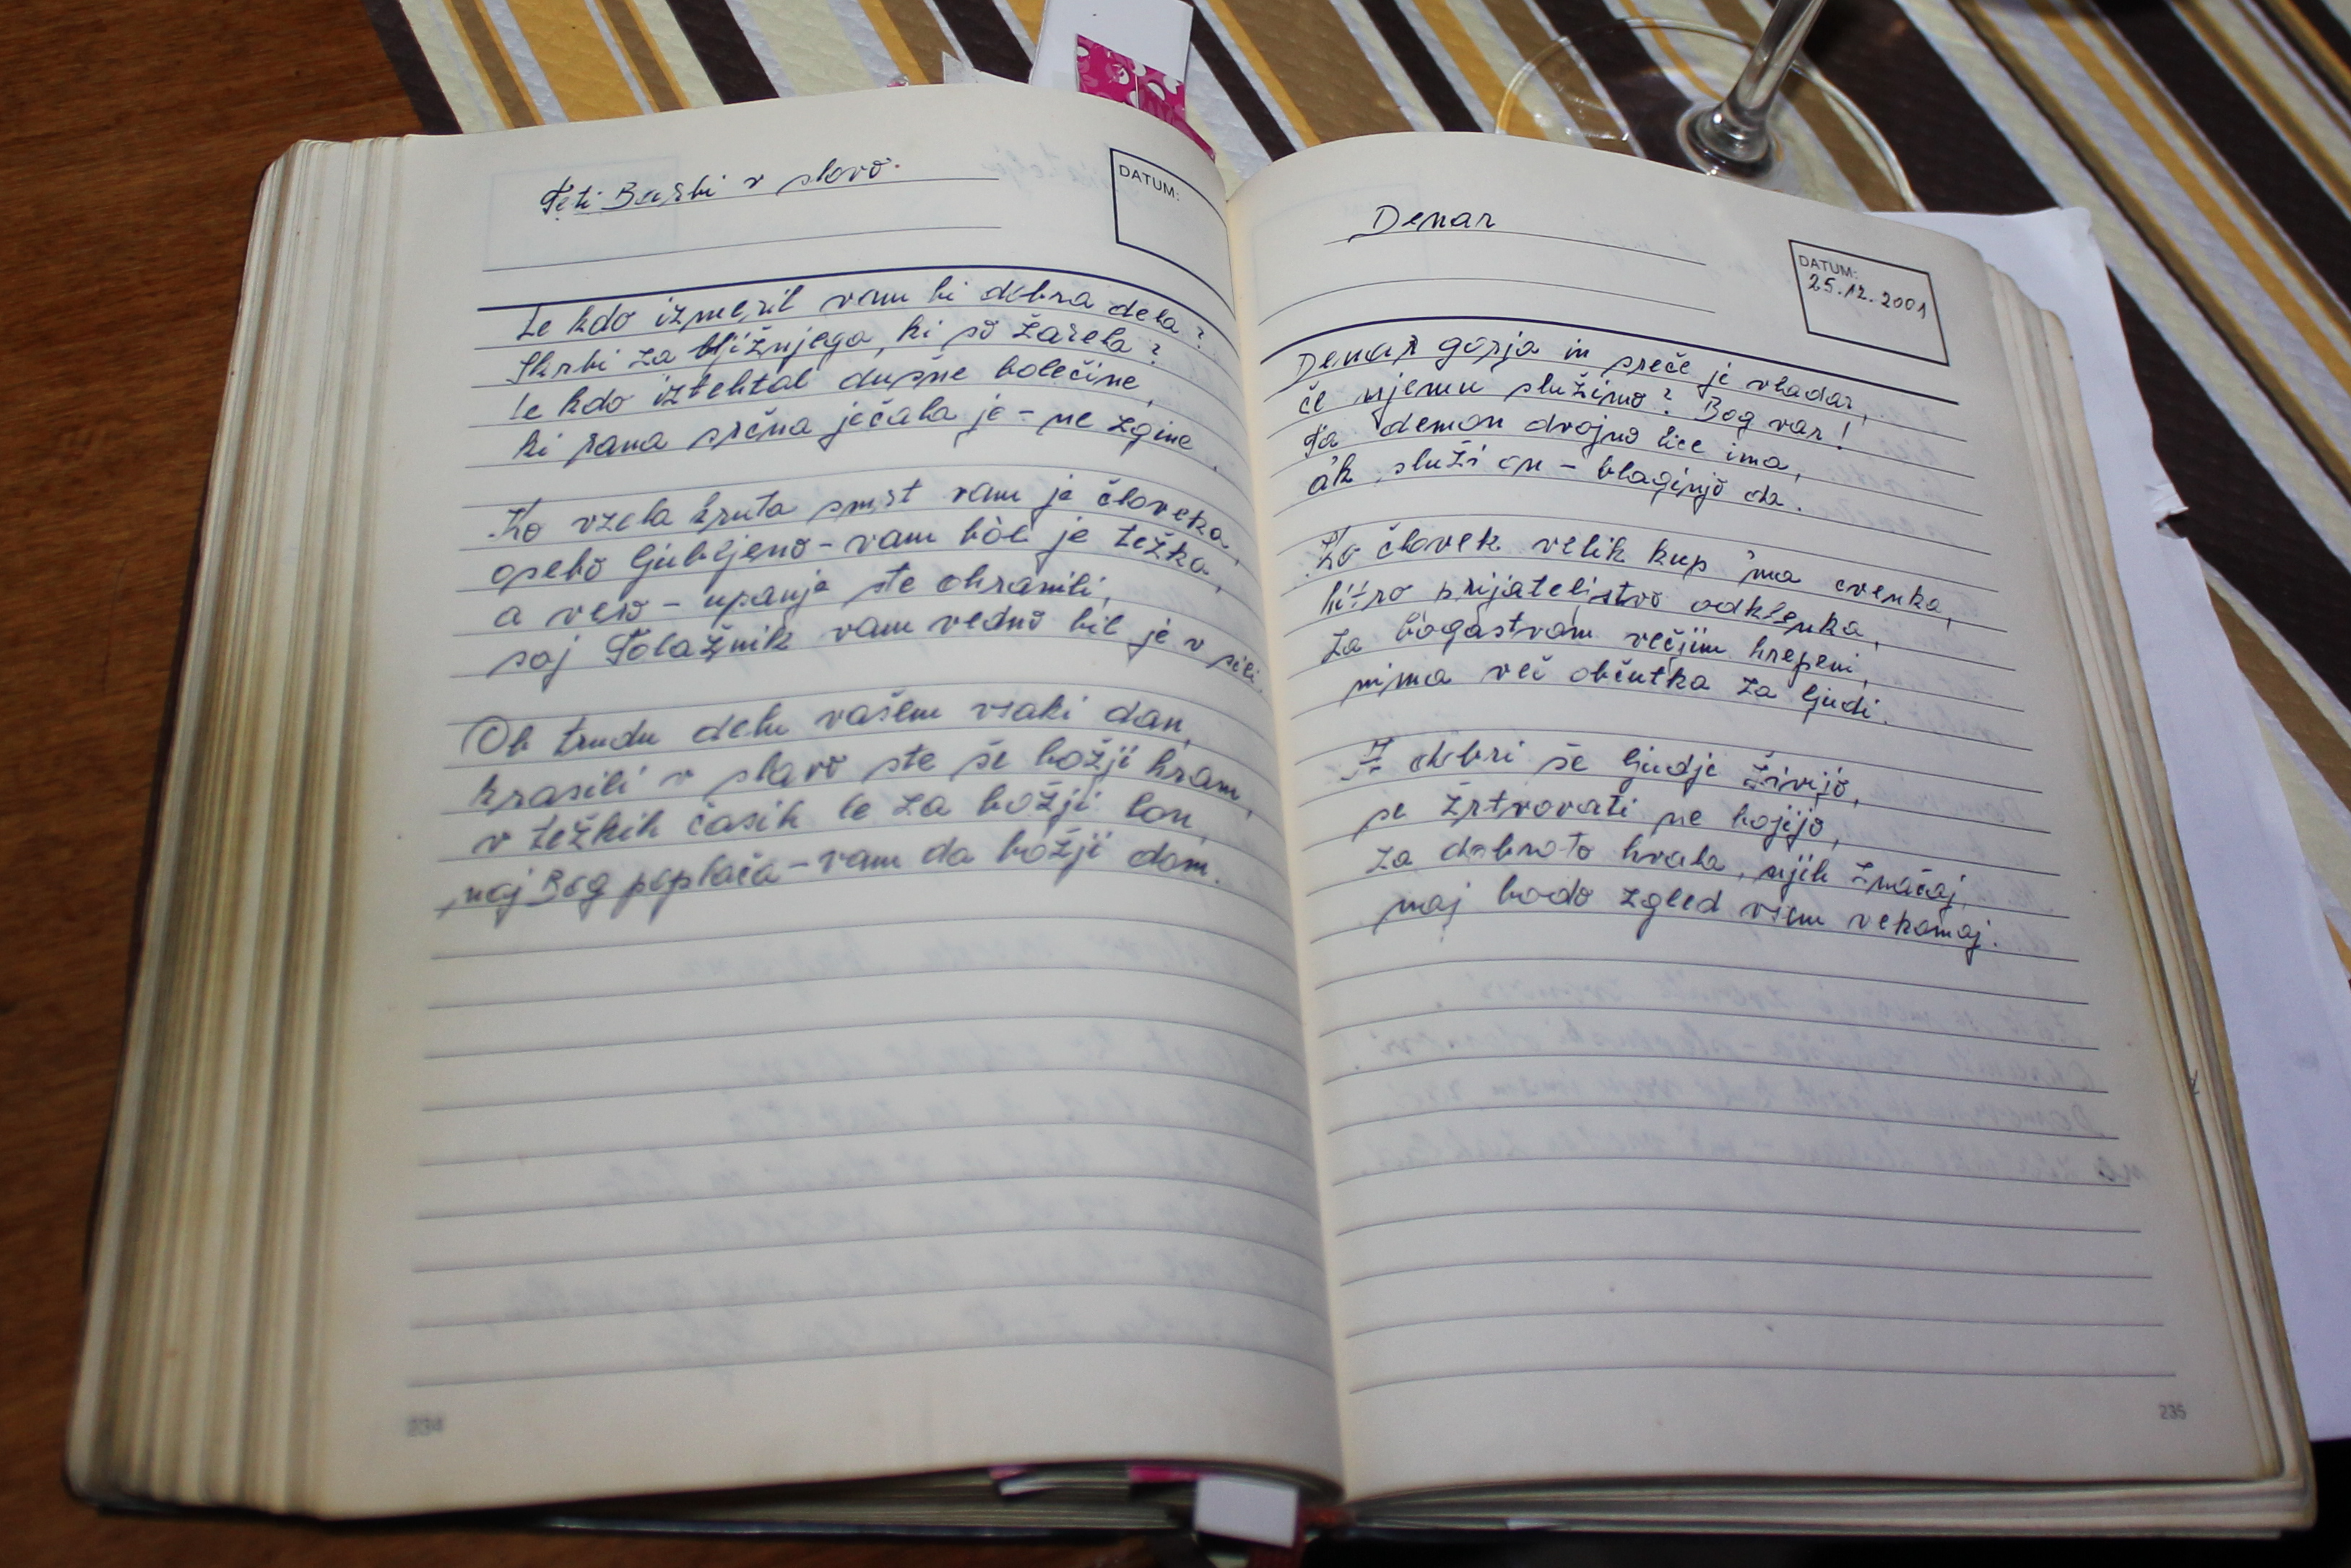 Teti Barbi v slovo.
DATUM:
Le kdo izmeril vam bi dobra dela?
Skrbi za bližnjega, ki so žarela?
Le kdo iztehtal dušne bolečine,
ki rana srčna ječala je - ne zgine.
Ko vzela kruta smrt vam je človeka,
osebo ljubljeno - vam bòl je težka,
a vero - upanje ste ohranili,
saj Tolažnik vam vedno bil je v sili.
Ob trudu delu vašem vsaki dan,
krasili v slavo ste še božji hram,
v težkih časih le za božji lon,
naj Bog poplača - vam da božji dom.
234
Denar
DATUM:
25.12.2001
Denar gorja in sreče je vladar,
če njemu služimo? Bog var!
Ta demon dvojno lice ima,
ak služi on - blaginjo da.
Ko človek velik kup 'ma cvenka,
hitro prijateljstvo odklenka,
za bogastvom večjim hrepeni,
nima več občutka za ljudi.
I dobri še ljudje živijo,
se žrtvovati ne bojijo,
za dobroto hvala, njih značaj,
naj bodo zgled vsem vekomaj.
235